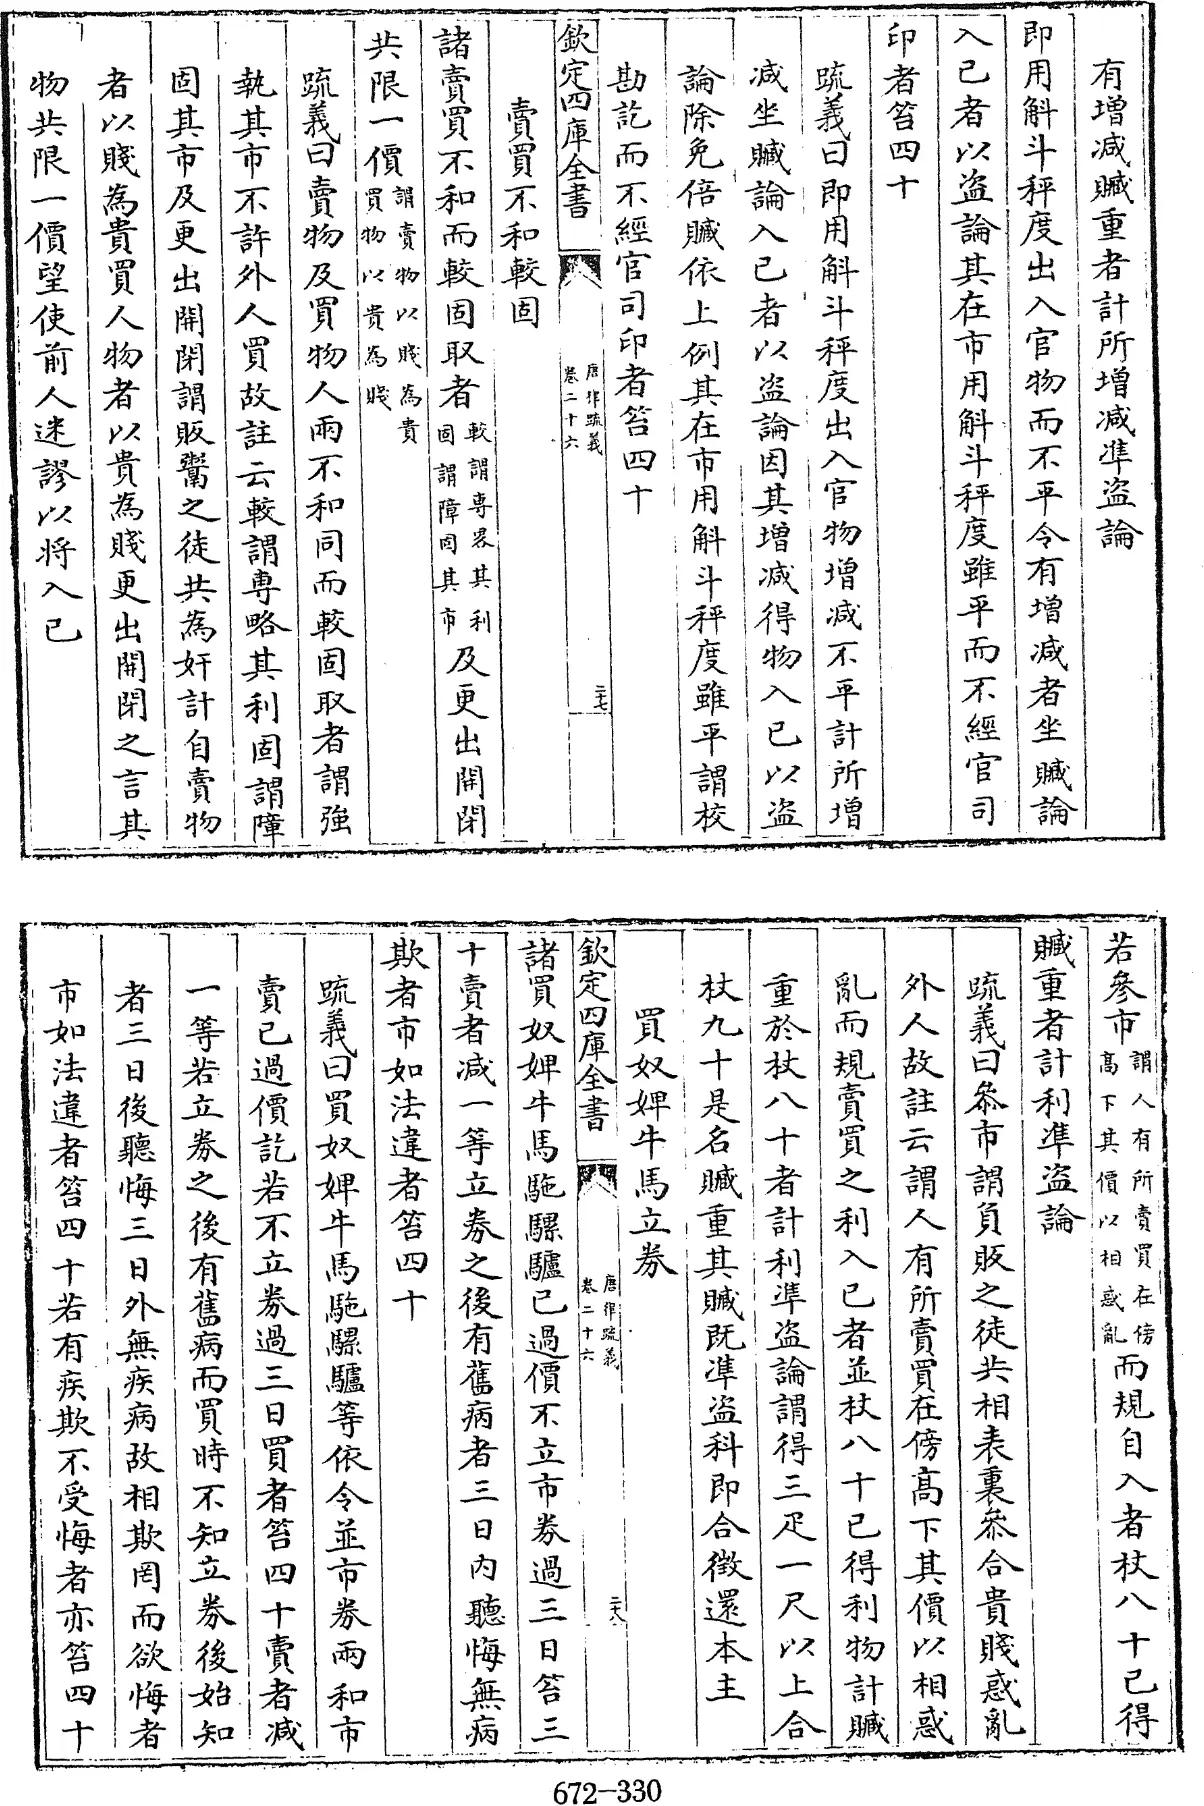 有增减贓重者計所增减準盜論
即用斛斗秤度出入官物而不平令有增减者坐贓論
入己者以盜論其在市用斛斗秤度雖平而不經官司
印者笞四十
疏義曰即用斛斗秤度出入官物增减不平計所增
减坐贓論入己者以盜論因其增减得物入己以盜
論除免倍贓依上例其在市用斛斗秤度雖平謂校
勘訖而不經官司印者笞四十
欽定四庫全書
唐律疏義
卷二十六
二十七
賣買不和較固
諸賣買不和而較固取者較謂專畧其利固謂障固其市及更出開閉
共限一價謂賣物以賤為貴買物以貴為賤
疏義曰賣物及買物人兩不和同而較固取者謂強
執其市不許外人買故註云較謂專略其利固謂障
固其市及更出開閉謂販鬻之徒共為奸計自賣物
者以賤為貴買人物者以貴為賤更出開閉之言其
物共限一價望使前人迷謬以将入己
若參市謂人有所賣買在傍高下其價以相惑亂而規自入者杖八十已得
贓重者計利準盜論
疏義曰叅市謂負販之徒共相表裏叅合貴賤惑亂
外人故註云謂人有所賣買在傍高下其價以相惑
亂而規賣買之利入己者並杖八十已得利物計贓
重於杖八十者計利準盜論謂得三疋一尺以上合
杖九十是名贓重其贓既準盜科即合徴還本主
買奴婢牛馬立券
欽定四庫全書
唐律疏義
卷二十六
二十八
諸買奴婢牛馬駞騾驢已過價不立市券過三日笞三
十賣者减一等立券之後有舊病者三日内聽悔無病
欺者市如法違者笞四十
疏義曰買奴婢牛馬駞騾驢等依令並市券兩和市
賣已過價訖若不立券過三日買者笞四十賣者减
一等若立券之後有舊病而買時不知立券後始知
者三日後聽悔三日外無疾病故相欺罔而欲悔者
市如法違者笞四十若有疾欺不受悔者亦笞四十
672-330